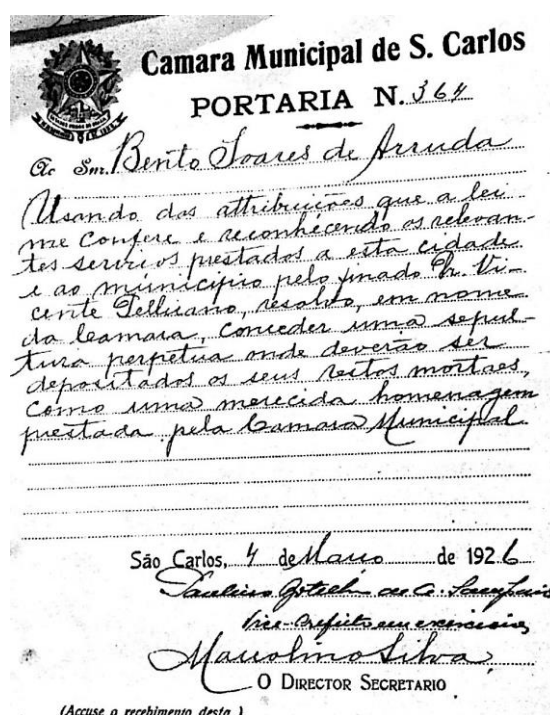 Camara Municipal de S. Carlos
PORTARIA N. 364
Ao Snr. Bento Soares de Arruda
Usando das attribuições que a lei
me confere e reconhecendo os relevan-
tes serviços prestados a esta cidade
e ao municipio pelo finado Dr. Vi-
cente Pellicano, resolvo, em nome
da Camara, conceder uma sepul-
tura perpetua onde deverão ser
depositados os seus restos mortaes,
como uma merecida homenagem
prestada pela Camara Municipal.
São Carlos, 4 de Março de 1926
Paulino Botelho de A. Sampaio
Vice-Prefeito em exercicio,
Marcolino Silva
O DIRECTOR SECRETARIO
(Accuse o recebimento desta.)